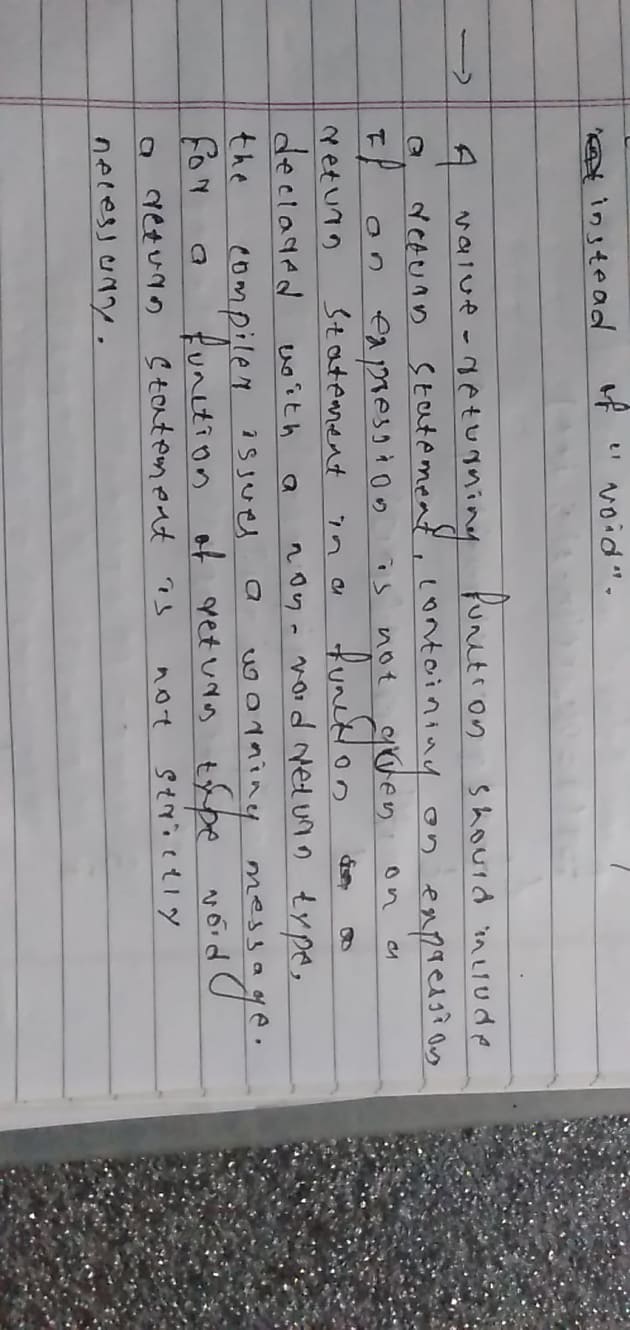 instead of "void".
→ A value-returning function should include
a return statement, containing an expression
If an expression is not given on a
return statement in a function
declared with a non-void return type,
the compiler issues a warning message.
For a function of return type void
a return statement is not strictly
necessary.